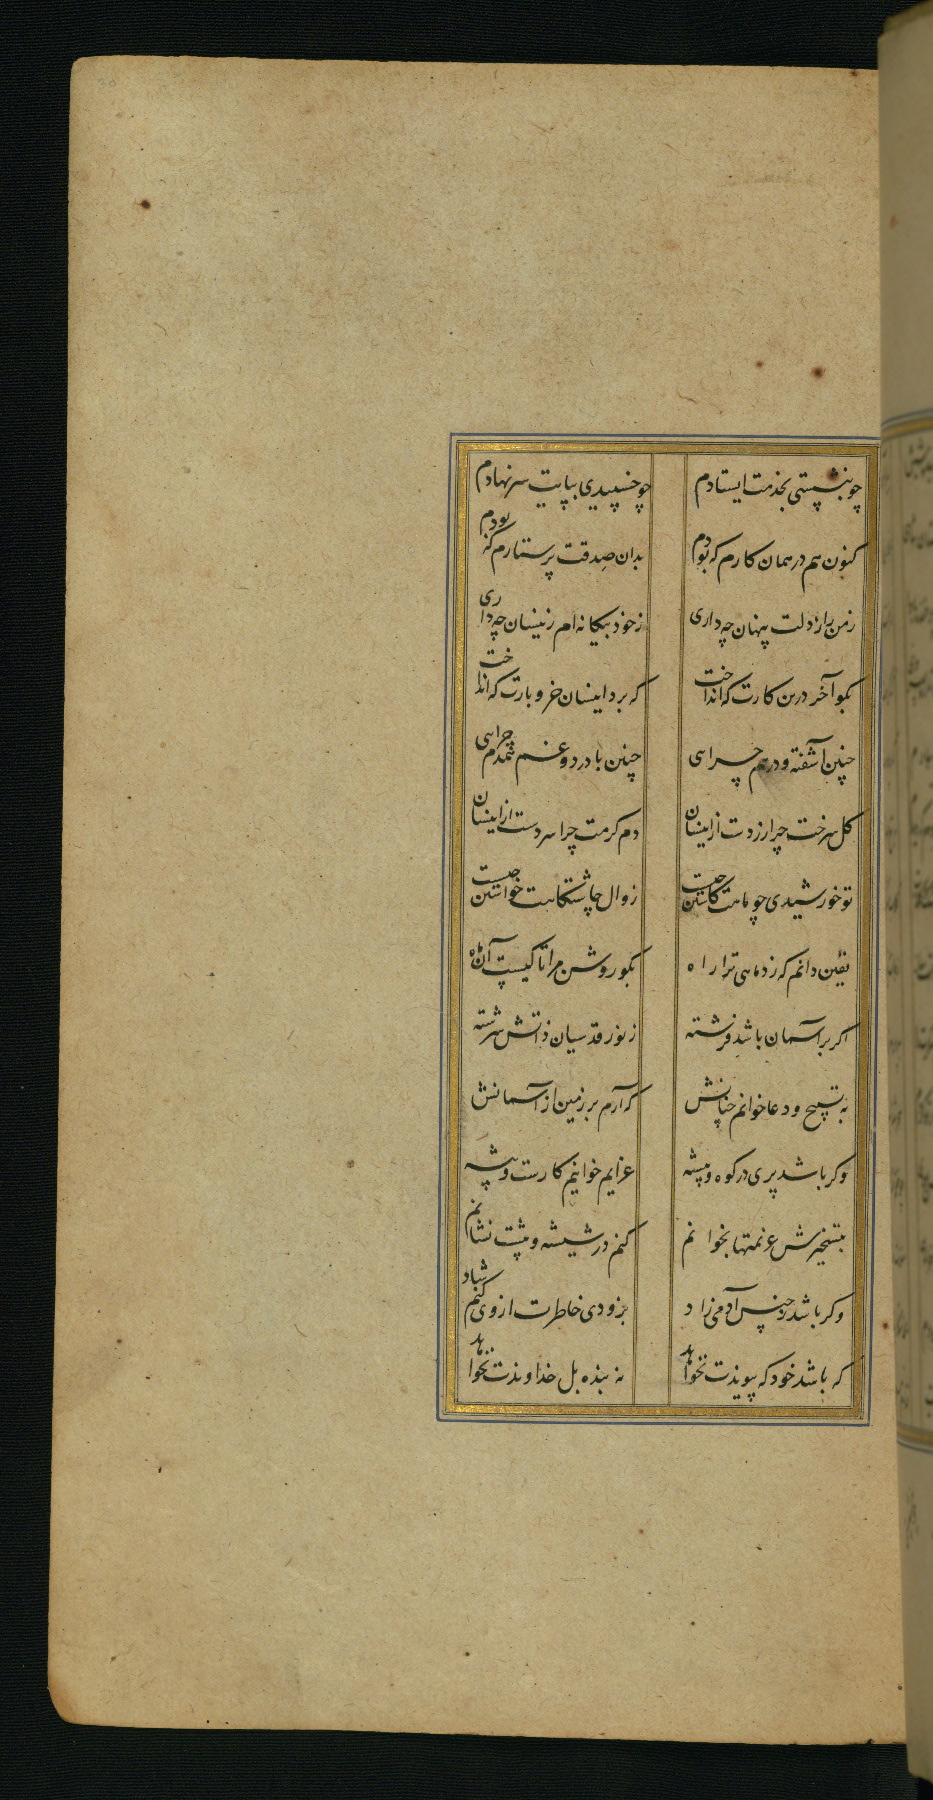 چو بنشستی بخدمت ایستادم چو خسپیدی بپایت سر نهادم
کنون هم در همان کارم که بودم بدان صدقت پرستارم که بودم
ز من راز دلت پنهان چه داری ز خود بیکانه ام زینسان چه داری
بکو آخر درین کارت که انداخت که برد اینسان خر و بارت که انداخت
چنین آشفته و درهم چرایی چنین با درد و غم همدم چرایی
کل سرخت چرا زردست ازینسان دم کرمت چرا سردست ازینسان
تو خورشیدی چو ماهت کاستن چیست زوال چاشتکاهت خواستن چیست
یقین دانم که زد ماهی ترا راه بکو روشن مرا تا کیست آن ماه
اکر بر آسمان باشد فرشته ز نور قدسیان ذاتش سرشته
به تسبیح و دعا خوانم چنانش که آرم بر زمین از آسمانش
وکر باشد پری در کوه و بیشه عزایم خوانیم کارست و پیشه
بتسخیرش عزیمتها بخوانم کنم در شیشه و پیشت نشانم
وکر باشد ز جنس آدمی زاد بزودی خاطرت از وی کنم شاد
که باشد خود که پیوندت نخواهد نه بنده بل خداوندت نخواهد